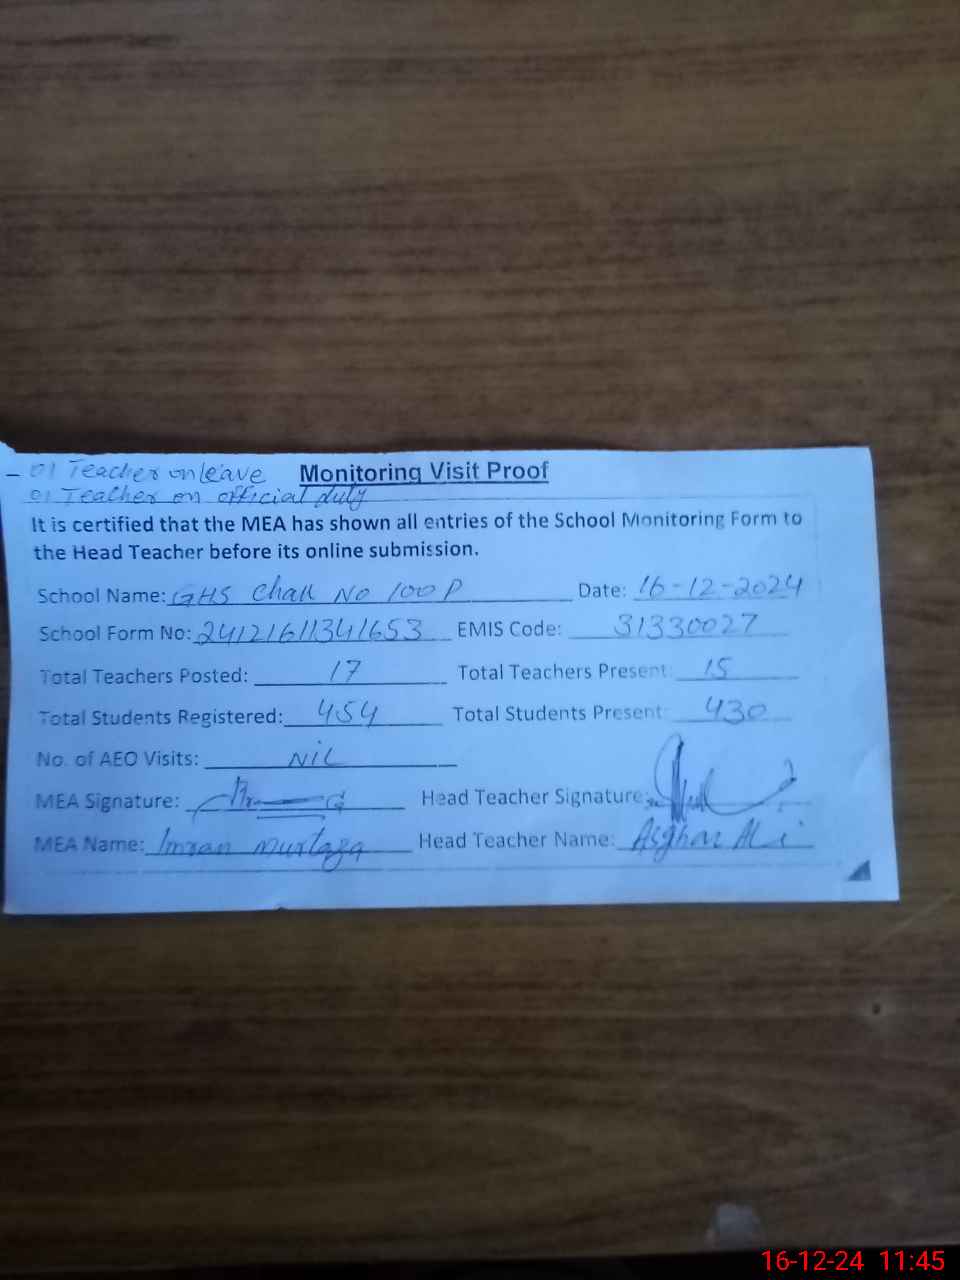 - 01 Teacher on leave Monitoring Visit Proof
01 Teacher on official duty
It is certified that the MEA has shown all entries of the School Monitoring Form to
the Head Teacher before its online submission.
School Name: GHS Chak No 100 P Date: 16-12-2024
School Form No: 24121611341653 EMIS Code: 31330027
Total Teachers Posted: 17 Total Teachers Present: 15
Total Students Registered: 454 Total Students Present: 430
No. of AEO Visits: NiL
MEA Signature: Head Teacher Signature:
MEA Name: Imran Murtaza Head Teacher Name: Asghar Ali
16-12-24 11:45